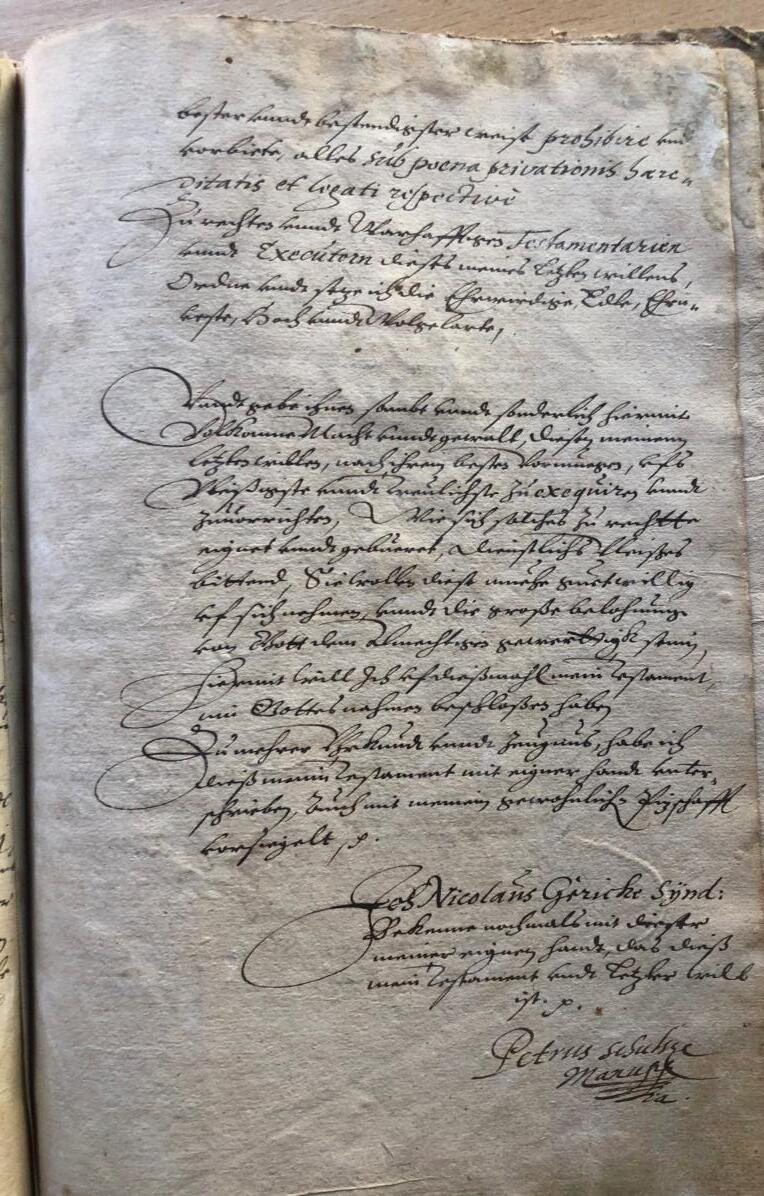 bester unnd bestendigster weise prohibire und
vorbiete, alles sub poena privationis haere-
ditatis et legati respectivè
Zu rechten unnd Warhafftigen Testamentarien
unnd Executorn dieses meines letzten willens,
Ordne unnd setze ich die Ehrwirdige, Edle, Ehrn-
veste, Hoch unnd Wolgelarte,
Unndt gebe ihnen sambt unnd sonderlich hiermit
Volkomne Macht unnd gewalt, diesen meinenn
letzten willen, nach ihrem besten vormuegen, ufs
fleißigste unnd treulichste zu exequiren unnd
zuvorrichten, Wie sich solches zu rechtte
eignet unnd gebueret, dienstliches fleißes
bittend, Sie wollen diese muehe guetwillig
uf sich nehmen, unnd die große belohnunge
von Gott dem Almechtigen gewerttigk sein,
Hiermit will Ich uf dießmahl mein Testament,
inn Gottes nahmen beschloßen haben
Zu mehrer Uhrkundt unnd Zeugnus, habe ich
dieß mein Testament mit eigner handt unter-
schrieben, Auch mit meinem gewohnlichen Pizschafft
vorsiegelt /p.
Ich Nicolaus Gericke Synd:
Bekenne nochmals mit dieser
meiner eignen handt, das dieß
mein Testament undt letzter will
ist. p.
Petrus Schultze